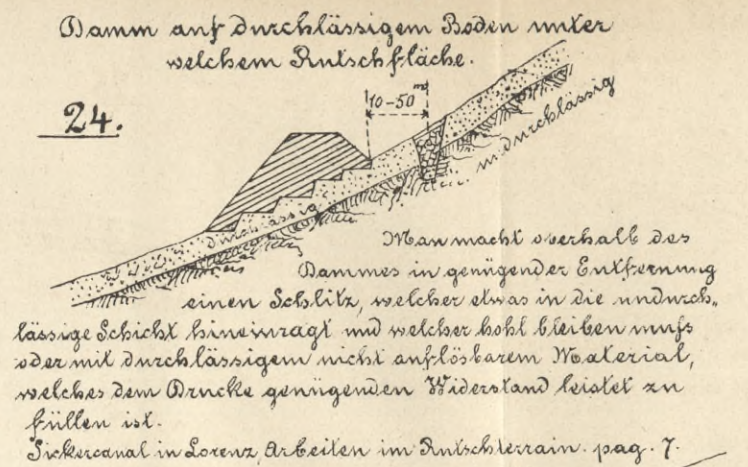 Damm auf durchlässigem Boden unter
welchem Rutschfläche.
10-50 m
24.
undurchlässig
durchlässig
Man macht oberhalb des
Dammes in genügender Entfernung
einen Schlitz, welcher etwas in die undurch-
lässige Schicht hineinragt und welcher hohl bleiben muss
oder mit durchlässigem nicht auflösbarem Material,
welches dem Drucke genügenden Widerstand leistet zu
füllen ist.
Sickercanal in Lorenz, Arbeiten im Rutschterrain. pag. 7.